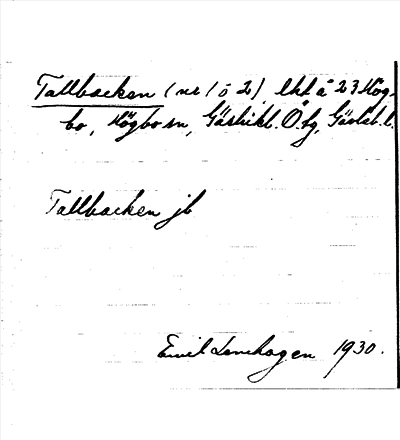 Tallbacken (nr 1 o 2), lht å 23 Hög-
bo, Högbo sn, Gästrikl. Ö. tg, Gävleb. l.
Tallbacken jb
Emil Lenhagen 1930.